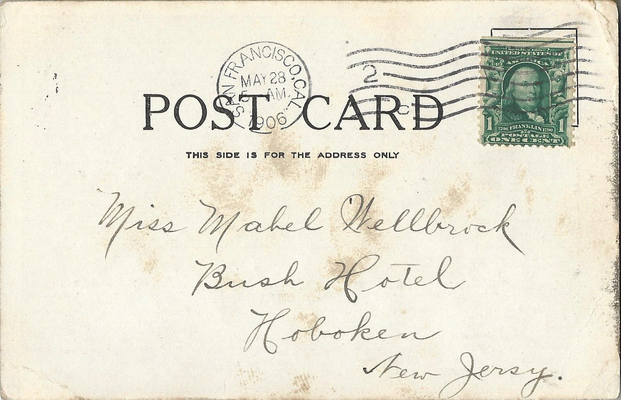 SAN FRANCISCO, CAL.
MAY 28
5 AM
1906
2
C
UNITED STATES OF
AMERICA
1 FRANKLIN 1
POSTAGE
ONE CENT
POST CARD
THIS SIDE IS FOR THE ADDRESS ONLY
Miss Mabel Wellbrock
Bush Hotel
Hoboken
New Jersy.